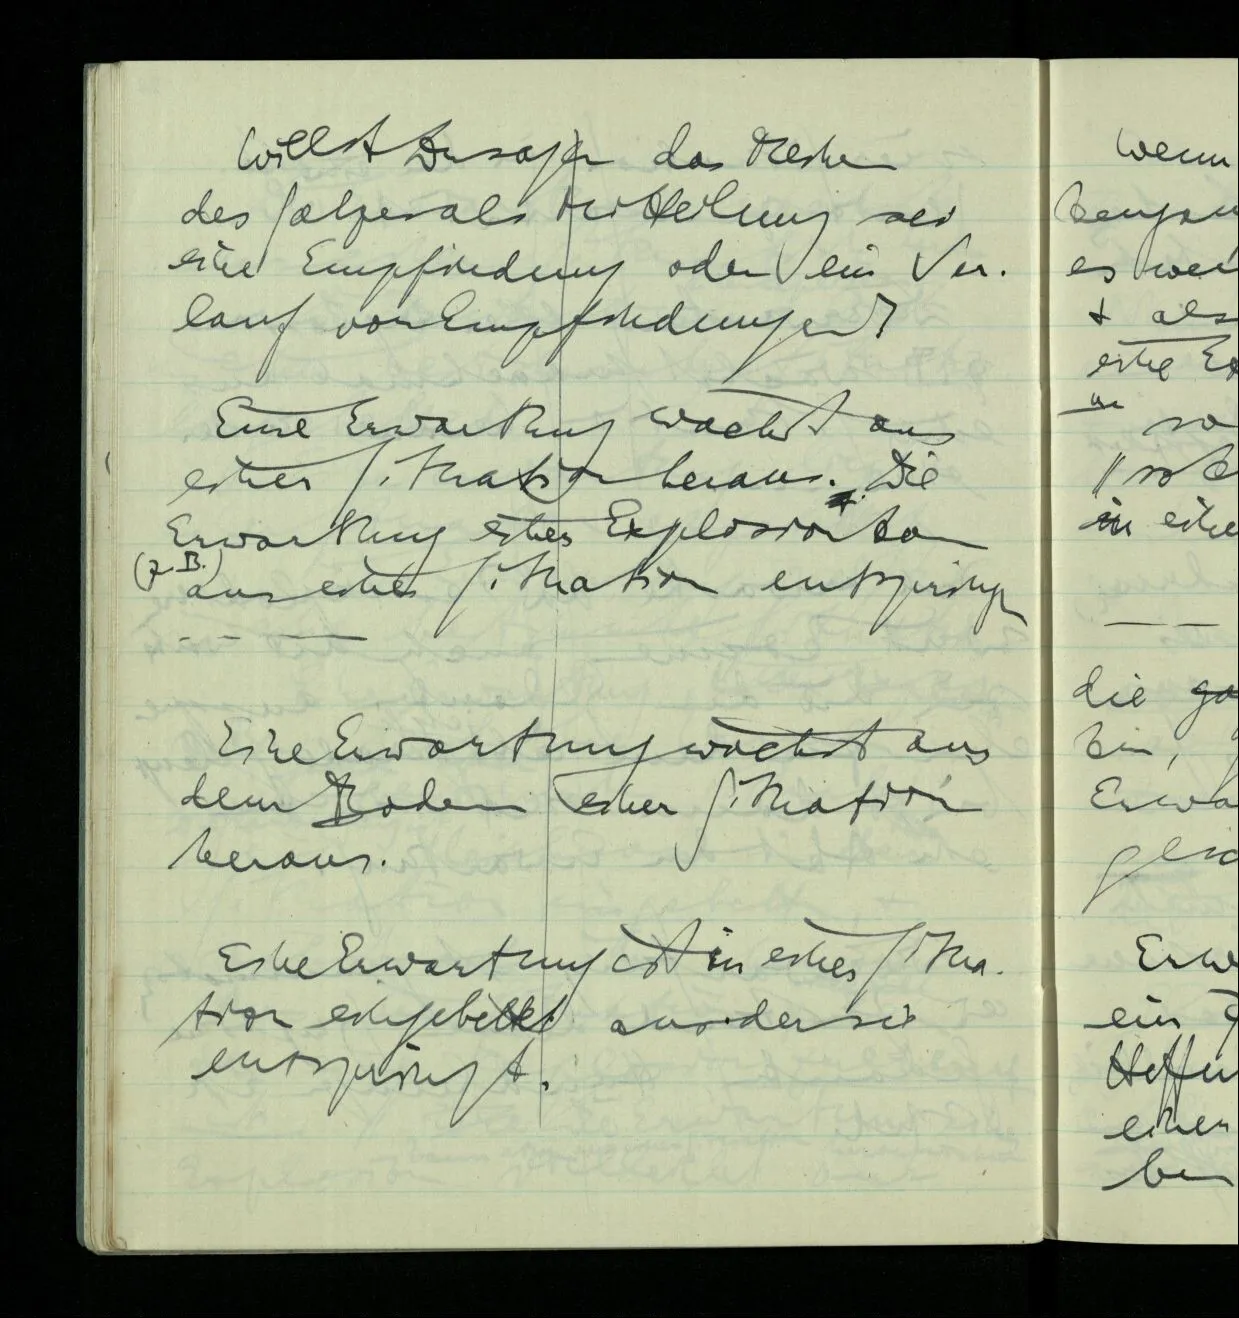 Willst Du sagen das Meinen
des Satzes als Mitteilung sei
eine Empfindung oder ein Ver-
lauf von Empfindungen?
Eine Erwartung wächst aus
einer Situation heraus. Die
Erwartung einer Explosion kann
(z.B.) aus einer Situation entspringen
— — —
Eine Erwartung wächst aus
dem Boden einer Situation
heraus.
Eine Erwartung ist in einer Situa-
tion eingebettet aus der sie
entspringt.
Wenn
es
& als
eine
so
in eine
— —
die
bin,
Erwa
ein
einen